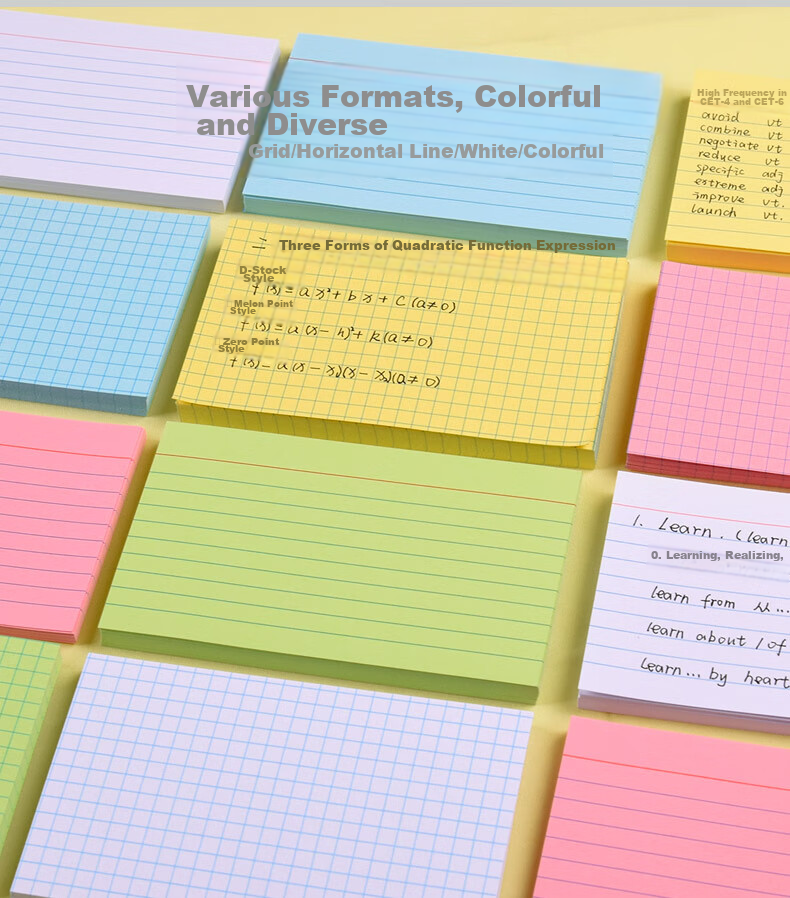 Various Formats, Colorful
and Diverse
Grid/Horizontal Line/White/Colorful
High Frequency in
CET-4 and CET-6
avoid vt
combine vt
negotiate vt
reduce vt
specific adj
estreme adj
improve vt.
launch vt.
二 Three Forms of Quadratic Function Expression
D-Stock
Style
f(x)=ax²+bx+c(a≠0)
Melon Point
Style
f(x)=a(x-h)²+k(a≠0)
Zero Point
Style
f(x)=a(x-x₁)(x-x₂)(a≠0)
1. Learn. (learn
0. Learning, Realizing,
learn from
learn about / of
Learn... by heart